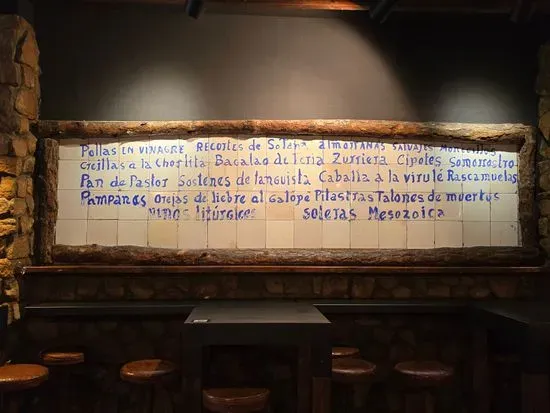 Pollas EN VINAGRE RECORTES de Solana almortanas SALVAJES
Orcillas a la Chorlita Bacalao de Teria Zurriera Cipotes Somorrostro
Pan de Pastor Sostenes de tanguista Caballa a la viruté Rascamuelas
PAMPANOS OREJAS de liebre al GALOPE Pilastras Talones de muertos
VINOS litúrgicos SOLERAS Mesozoica